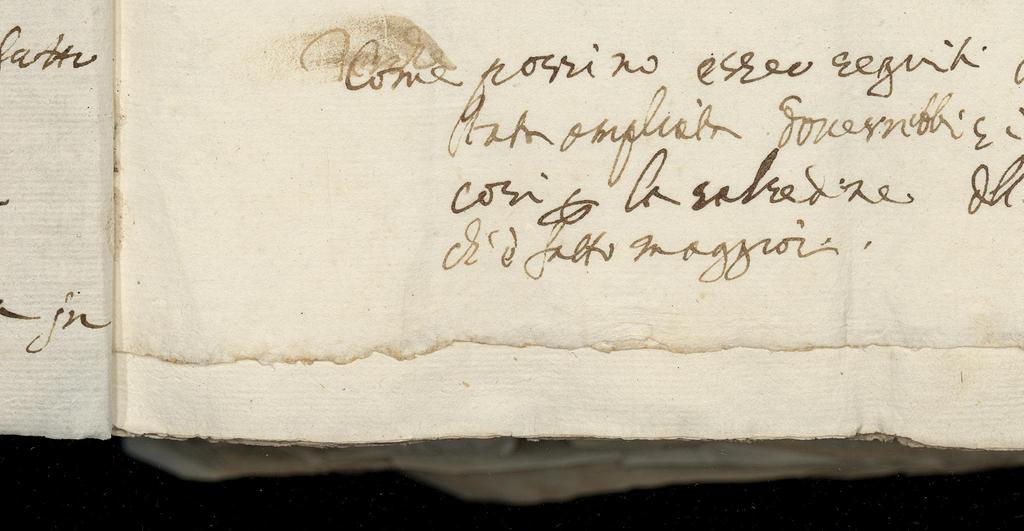 fatto
Come possino esser seguiti
stati ampliati doverebbi
così p la salsedine dll
ch'è fatto maggior.
in